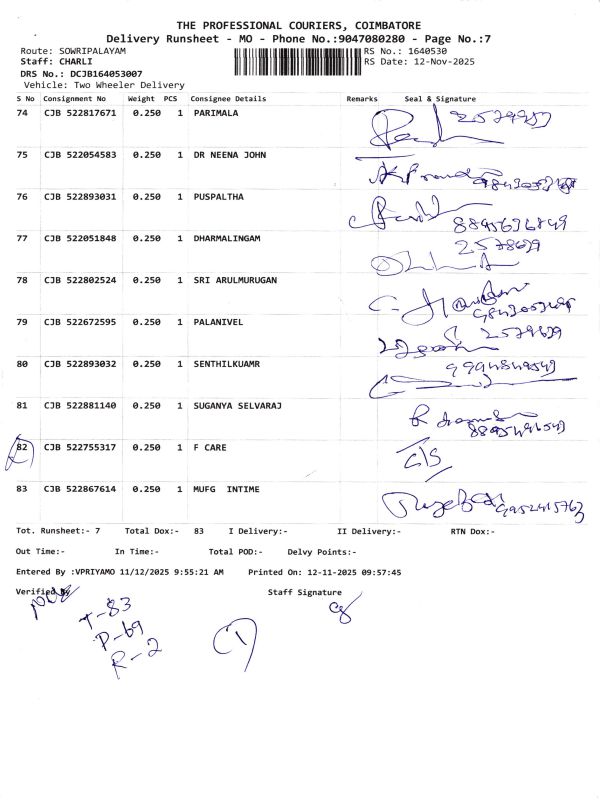 THE PROFESSIONAL COURIERS, COIMBATORE
Delivery Runsheet - MO - Phone No.:9047080280 - Page No.:7
Route: SOWRIPALAYAM RS No.: 1640530
Staff: CHARLI RS Date: 12-Nov-2025
DRS No.: DCJB164053007
Vehicle: Two Wheeler Delivery
S No Consignment No Weight PCS Consignee Details Remarks Seal & Signature
74 CJB 522817671 0.250 1 PARIMALA
75 CJB 522054583 0.250 1 DR NEENA JOHN
76 CJB 522893031 0.250 1 PUSPALTHA
77 CJB 522051848 0.250 1 DHARMALINGAM
78 CJB 522802524 0.250 1 SRI ARULMURUGAN
79 CJB 522672595 0.250 1 PALANIVEL
80 CJB 522893032 0.250 1 SENTHILKUAMR
81 CJB 522881140 0.250 1 SUGANYA SELVARAJ
82 CJB 522755317 0.250 1 F CARE
83 CJB 522867614 0.250 1 MUFG INTIME
Tot. Runsheet:- 7 Total Dox:- 83 I Delivery:- II Delivery:- RTN Dox:-
Out Time:- In Time:- Total POD:- Delvy Points:-
Entered By :VPRIYAMO 11/12/2025 9:55:21 AM Printed On: 12-11-2025 09:57:45
Verified By Staff Signature
T-83
P-69
R-2